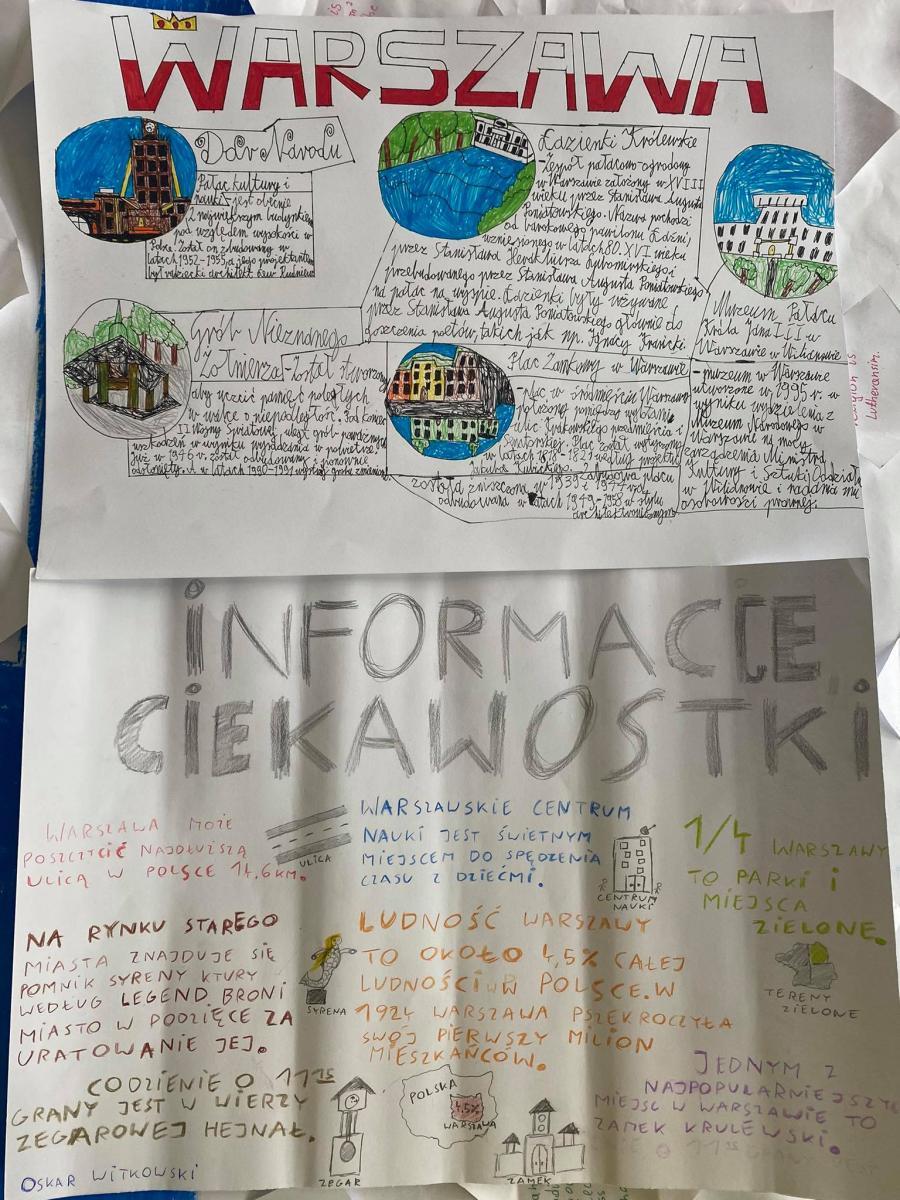 WARSZAWA
Dar Narodu
Pałac kultury i
nauki - jest obecnie
2 największym budynkiem
pod względem wysokości w
Polsce. Został on zbudowany w
latach 1952-1955, a jego projektantem
był radziecki architekt Lew Rudniew
Łazienki Królewskie
-Zespół pałacowo-ogrodowy
w Warszawie założony w XVIII
wieku przez Stanisława Augusta
Poniatowskiego. Nazwa pochodzi
od barokowego pawilonu Łaźni,
wzniesionego w latach 80. XVI wieku
przez Stanisława Herakliusza Lubomirskiego i
przebudowanego przez Stanisława Augusta Poniatowskiego
na pałac na wyspie. Łazienki były używane
przez Stanisława Augusta Poniatowskiego głównie do
goszczenia poetów, takich jak np. Ignacy Krasicki.
Muzeum Pałacu
Króla Jana III w
Warszawie w Wilanowie
-muzeum w Warszawie
utworzone w 1995 r. w
wyniku wydzielenia z
Muzeum Narodowego w
Warszawie na mocy
zarządzenia Ministra
Kultury i Sztuki Oddziału
w Wilanowie i nadania mu
osobowości prawnej.
Grób Nieznanego
Żołnierza - Został stworzony
aby uczcić pamięć poległych
w walce o niepodległość. Pod koniec
II Wojny Światowej, uległ grób poważnym
uszkodzeń w wyniku wysadzenia w powietrze.
Już w 1946 r. został odbudowany i ponownie
odsłonięty. A w latach 1990-1991 wystrój grobu zmieniony
Plac Zamkowy w Warszawie
-plac w śródmieściu Warszawy
położony pomiędzy wylotami
ulic Krakowskiego przedmieścia i
Senatorskiej. Plac został wytyczony
w latach 1818-1821 według projektu
Jakuba Kubickiego. Zabudowa placu
została zniszczona w 1939 i 1944 roku
odbudowana w latach 1949-1958 w stylu
architektonicznym
INFORMACJE,
CIEKAWOSTKI
WARSZAWA MOŻE
POSZCYCIĆ NAJDŁUŻSZĄ
ULICĄ W POLSCE 14,6 KM.
ULICA
WARSZAWSKIE CENTRUM
NAUKI JEST ŚWIETNYM
MIEJSCEM DO SPĘDZENIA
CZASU Z DZIEĆMI.
CENTRUM
NAUKI
1/4 WARSZAWY
TO PARKI I
MIEJSCA
ZIELONE.
TERENY
ZIELONE
NA RYNKU STAREGO
MIASTA ZNAJDUJE SIĘ
POMNIK SYRENY KTURY
WEDŁUG LEGEND BRONI
MIASTO W PODZIĘCE ZA
URATOWANIE JEJ.
SYRENA
LUDNOŚĆ WARSZAWY
TO OKOŁO 4,5% CAŁEJ
LUDNOŚCI W POLSCE. W
1924 WARSZAWA PSZEKROCZYŁA
SWÓJ PIERWSZY MILION
MIESZKAŃCÓW.
CODZIENIE O 11 15
GRANY JEST W WIERZY
ZEGAROWEJ HEJNAŁ.
ZEGAR
POLSKA
4,5%
WARSZAWA
ZAMEK
JEDNYM Z
NAJPOPULARNIEJSZYCH
MIEJSC W WARSZAWIE TO
ZAMEK KRULEWSKI.
OSKAR WITKOWSKI
Lutheransim.